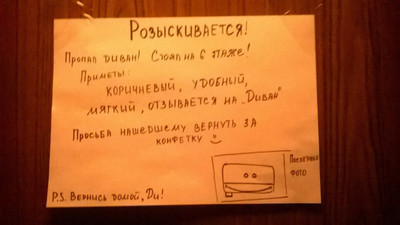 Розыскивается!
Пропал диван! Стоял на 6 этаже!
Приметы:
коричневый, удобный,
мягкий, отзывается на „Диван“
Просьба нашедшему вернуть за
конфетку
Последнее
фото
P.S. Вернись домой, Ди!